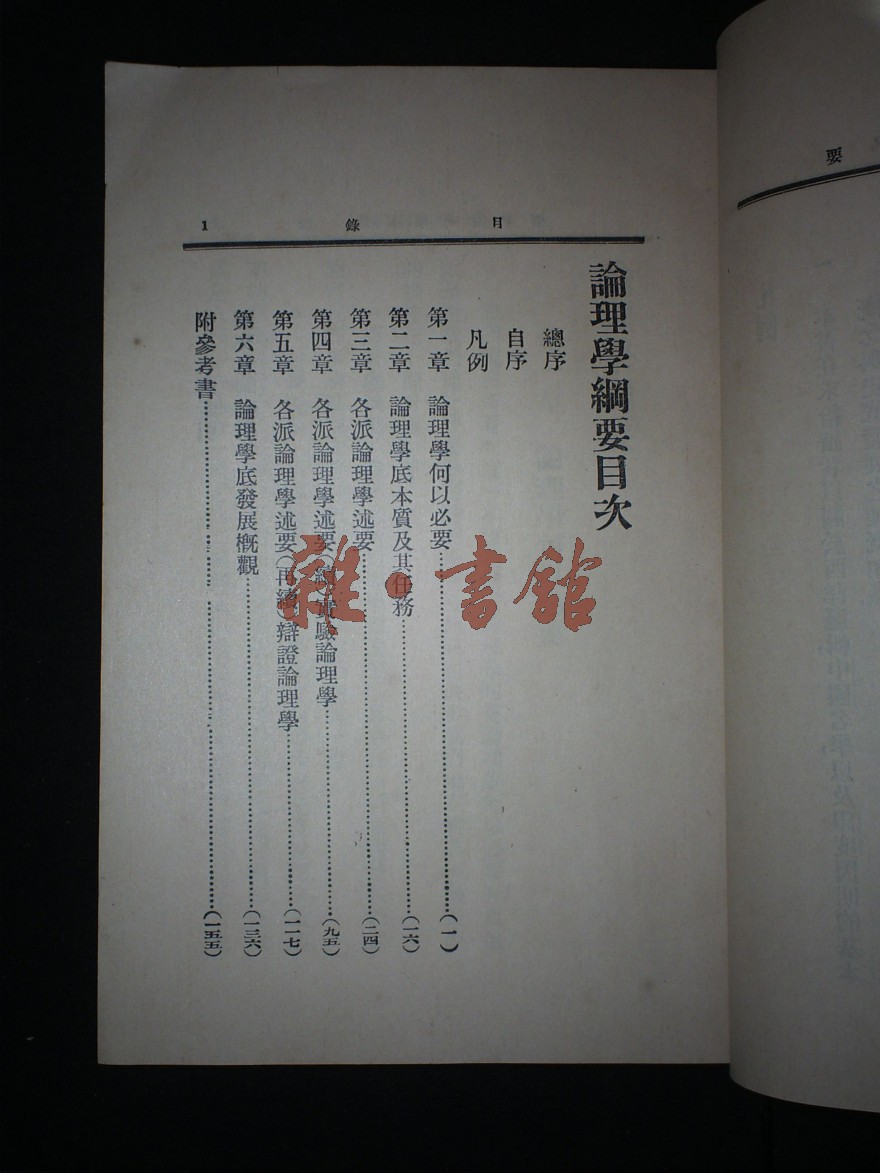 目錄 1
論理學綱要目次
總序
自序
凡例
第一章 論理學何以必要……(一)
第二章 論理學底本質及其任務……(一六)
第三章 各派論理學述要……(二四)
第四章 各派論理學述要(續)實驗論理學……(九五)
第五章 各派論理學述要(再續)辯證論理學……(一一七)
第六章 論理學底發展概觀……(一三六)
附參考書……(一五五)
要
雜·書館